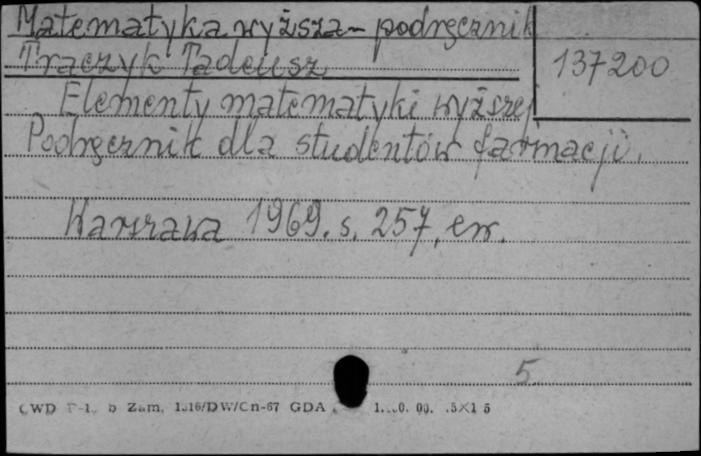 Matematyka wyższa - podręcznik
Traczyk Tadeusz
137200
Elementy matematyki wyższej
Podręcznik dla studentów farmacji.
Warszawa 1969. s. 257,
5
CWD Zam. GDA